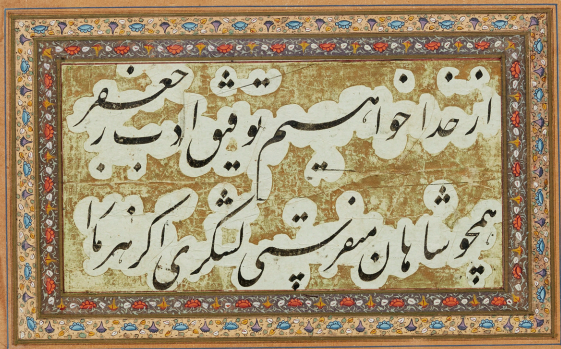 از خدا خواهیم توفیق ادب جعفر
همچو شاهان لشکری اکر